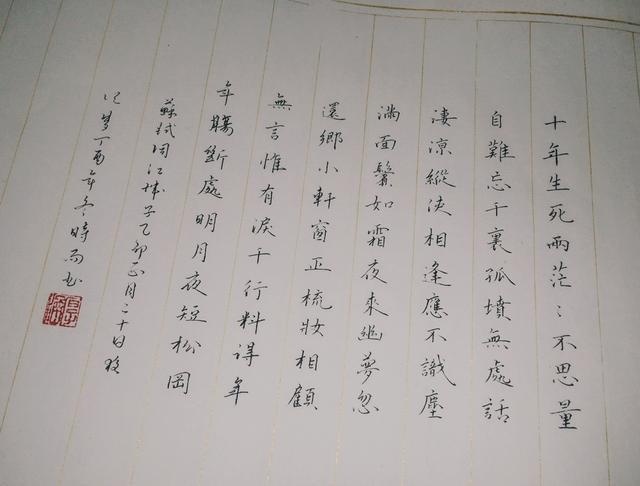 十年生死兩茫〻不思量
自難忘千裏孤墳無處話
淒涼縱使相逢應不識塵
滿面鬢如霜夜來幽夢忽
還鄉小軒窗正梳妝相顧
無言惟有淚千行料得年
年腸斷處明月夜短松岡
蘇軾词江城子乙卯正月二十日夜
记梦丁酉年冬時雨书